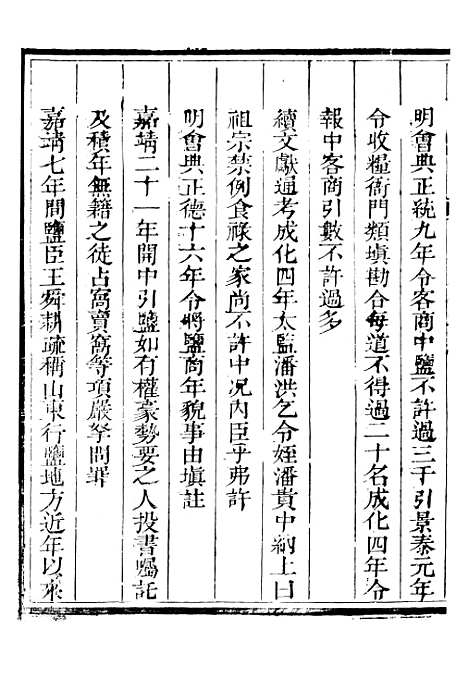 明會典正統九年令客商中鹽不許過三千引景泰元年
令收糧衙門類塡勘合每道不得過二十名成化四年令
報中客商引數不許過多
續文獻通考成化四年太監潘洪乞令姪潘貴中納上曰
祖宗禁例食祿之家尚不許中况內臣乎弗許
明會典正德十六年令將鹽商年貌事由塡註
嘉靖二十一年開中引鹽如有權豪勢要之人投書囑託
及積年無籍之徒占窩賣窩等項嚴拏問罪
嘉靖七年間鹽臣王舜耕疏稱山東行鹽地方近年以來